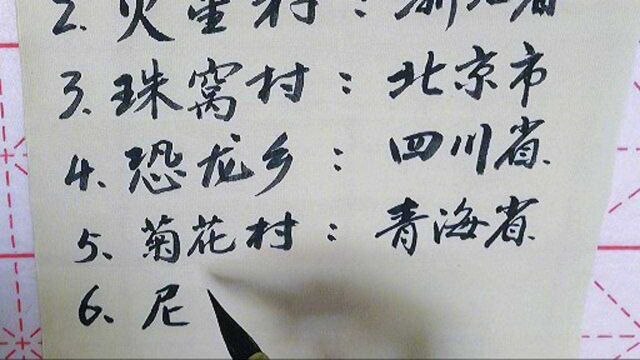 2.火星村：浙江省
3.珠窝村：北京市
4.恐龙乡：四川省
5.菊花村：青海省
6.尼